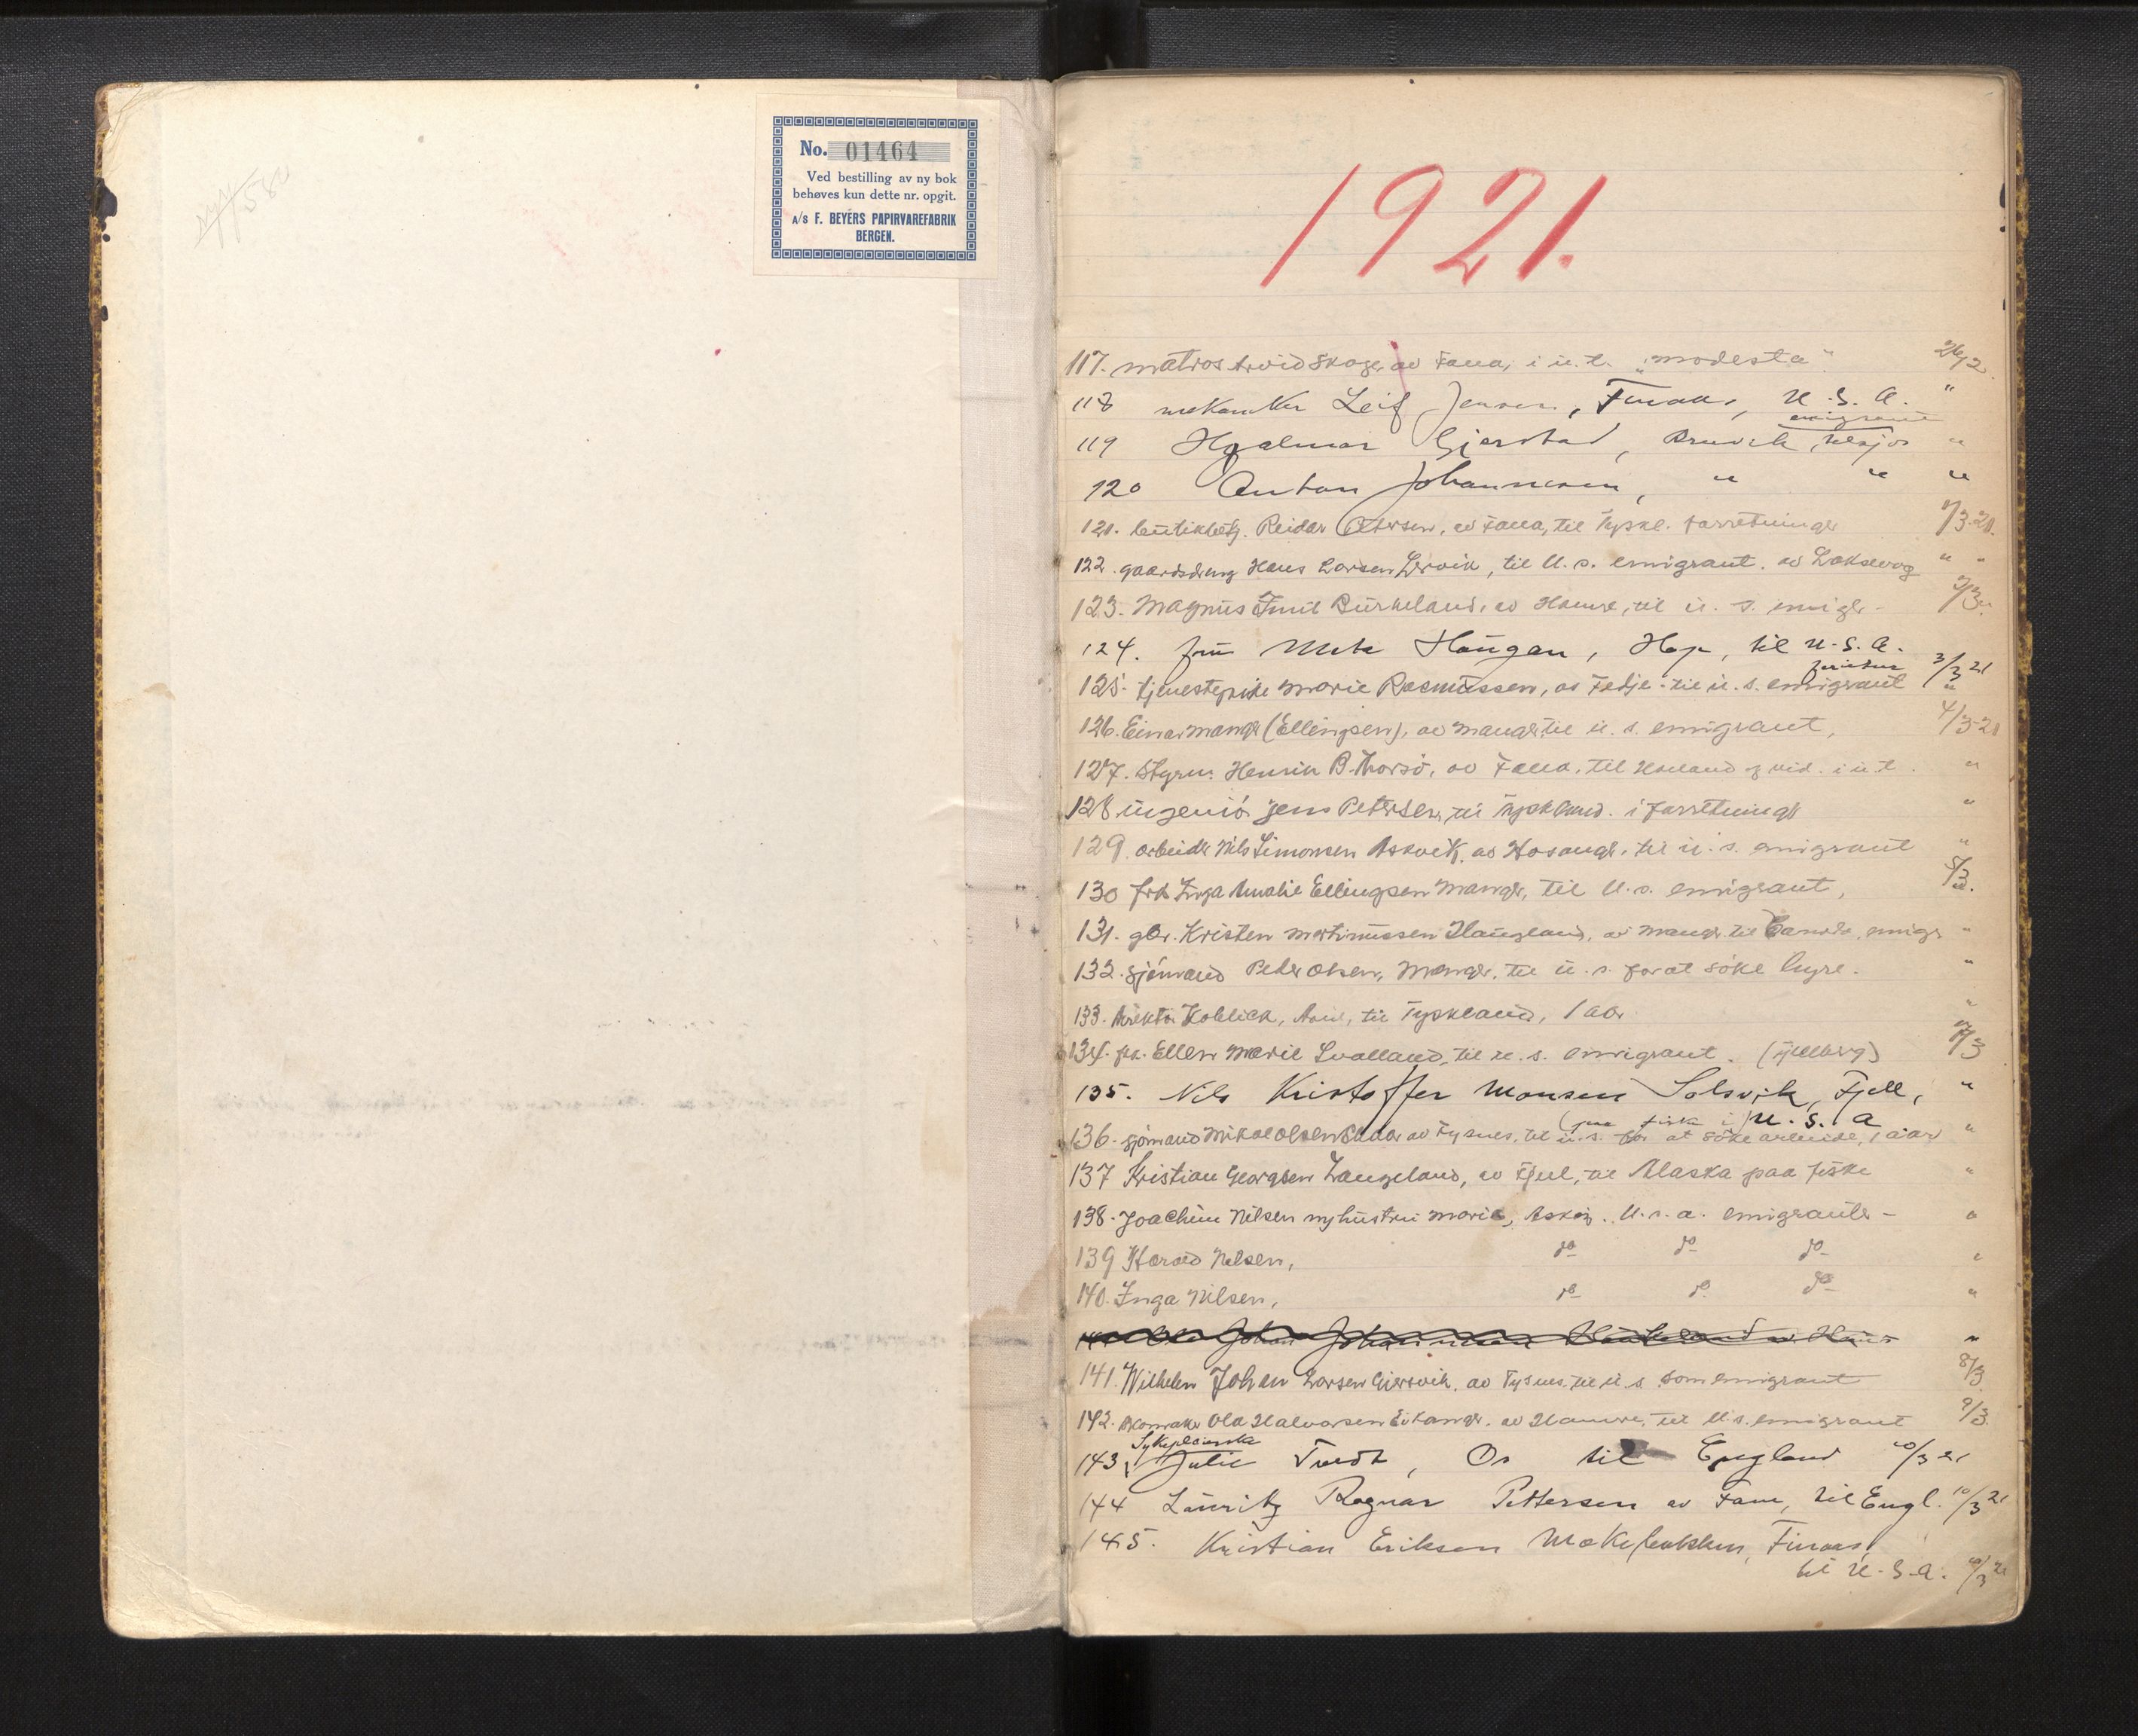 No. 01464
Ved bestilling av ny bok
behøves kun dette nr. opgit.
A/S F. BEYERS PAPIRVAREFABRIK
BERGEN.
1921.
117. matros Arvid Skage, av Fana, i u.t. "modesta" 26/2
118 mekaniker Leif Jensen, Finaas, U.S.A. "
emigrant
119 Hjalmar Gjerstad, Bruvik "
120 Anton Johannesen, " " "
121. Reidar Petersen, av Fana, til Tyskl. forretninger 1/3-21.
122. gaardsdreng Hans Larsen Lervik, til U.s. emigrant. av Laksevog " "
123. Magnus Emil Birkeland, av Hamre, til u.s. emigr- 2/3
124. fru Haugan, Hop, til U.S.A. 3/3 21
125. tjenestepike Marie Rasmussen, av Fedje. til u.s. emigrant "
126. Einar Manger (Ellingsen), av Manger, til u.s. emigrant, 4/3-21
127. Styrm. Henrik B. Thorsö, av Fana, til Holland i u.t. "
128 ingeniör Jens Petersen, til Tyskland. i forretninger "
129. arbeider Nils Simonsen Askvik, av Hosanger, til u.s. emigrant "
130 frk Inga Amalie Ellingsen Manger, til U.s. emigrant, 5/3.
131. gbr. Kristen Martinussen Haugland, av Manger til Canada, emigr "
132. sjömand Peder Olsen, Manger, til u.s. for at söke hyre. "
133. Direktör Koblick, til Tyskland, 1 aar "
134. frk. Ellen Marie Lvalland, til u.s. emigrant. 7/3
135. Nils Kristoffer Monsen Solsvik, Fjell, "
(paa fiske i) U.S.A
136. sjömand Mikal Olsen av Tysnes, til u.s. for at söke arbeide, 1 aar "
137 Kristian Georgsen Langeland, av Fjell, til Alaska paa fiske "
138. Joachim Nilsen og hustru Marie, Asköy. U.s.a. emigranter - "
139 Harald Nilsen, do do do "
140. Inga Nilsen, do do do "
Johan Johannesen "
141. Wilhelm Johan Larsen Gjersvik, av Tysnes, til u.s. som emigrant 8/3
142. Ola Halvorsen Eikanger, av Hamre, til U.s. emigrant 9/3
Sykepleierske
143 Julie Tvedt, Os til England 10/3 21
144 Lauritz Ragnar Pettersen av Fana, til Engl. 10/3 21
145. Kristian Eriksen Finaas,
til U.S.A. 10/3 21